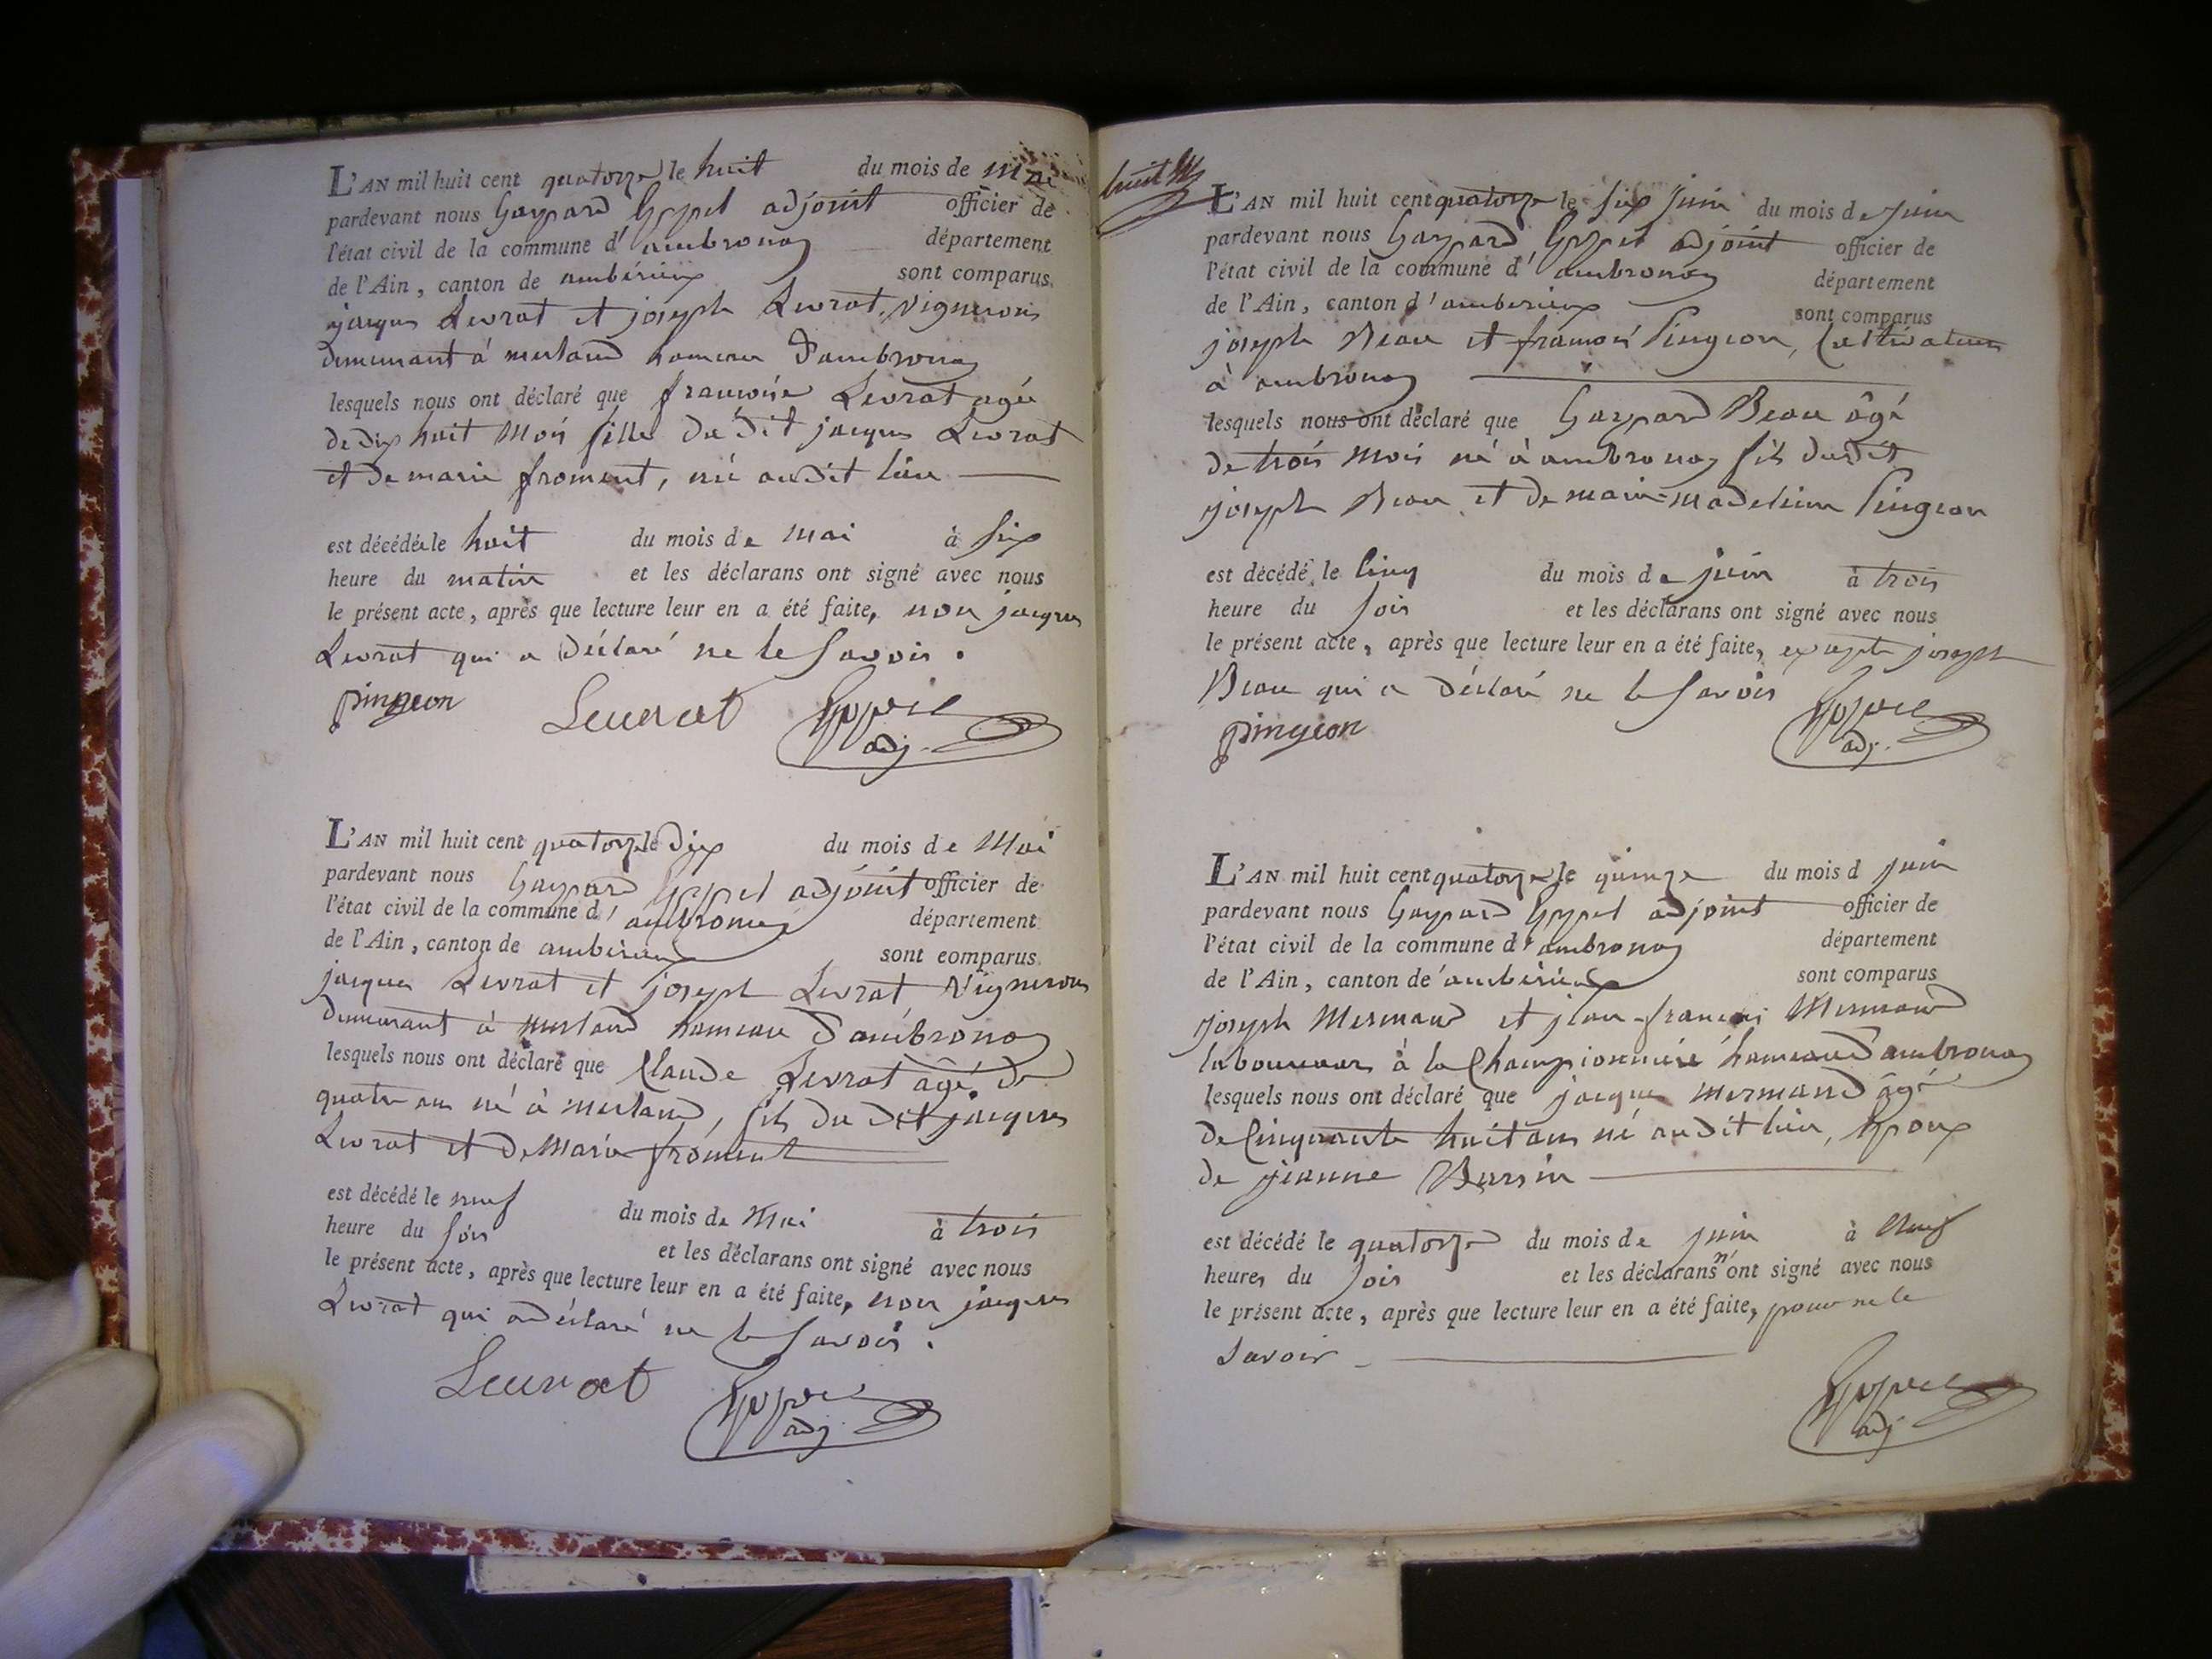 L'AN mil huit cent quatorze le huit du mois de mai
pardevant nous Gaspard Goppet adjoint officier de
l'état civil de la commune d' ambronay département
de l'Ain, canton de ambérieux sont comparus
jacques Levrat et joseph Levrat, vignerons
demeurant à merland hameau d'ambronay
lesquels nous ont déclaré que françoise Levrat agée
de dix huit mois fille du dit jacques Levrat
et de marie froment, née audit lieu
est décédée le huit du mois de mai à six
heure du matin et les déclarans ont signé avec nous
le présent acte, après que lecture leur en a été faite, non jacques
Levrat qui a déclaré ne le savoir.
pingeon Leuvrat adj.
L'AN mil huit cent quatorze le dix du mois de Mai
pardevant nous Gaspard Goppet adjoint officier de
l'état civil de la commune d' ambronay département
de l'Ain, canton de ambérieux sont comparus
jacques Levrat et joseph Levrat vignerons
demeurant à merland hameau d'ambronay
lesquels nous ont déclaré que Claude Levrat âgé de
quatre ans né à merland, fils du dit jacques
Levrat et de Marie froment
est décédé le neuf du mois de Mai à trois
heure du soir et les déclarans ont signé avec nous
le présent acte, après que lecture leur en a été faite, non jacques
Levrat qui a déclaré ne le savoir.
Leuvrat adj
huit
L'AN mil huit cent quatorze le six juin du mois de juin
pardevant nous Gaspard Goppet adjoint officier de
l'état civil de la commune d' ambronay département
de l'Ain, canton d'ambérieux sont comparus
joseph Beau et françois Pingeon, Cultivateurs
à ambronay
lesquels nous ont déclaré que Gaspard Beau âgé
de trois mois né à ambronay fils dudit
joseph Beau et de marie-madeleine Pingeon
est décédé le Cinq du mois de juin à trois
heure du soir et les déclarans ont signé avec nous
le présent acte, après que lecture leur en a été faite, excepté joseph
Beau qui a déclaré ne le savoir
pingeon adj.
L'AN mil huit cent quatorze le quinze du mois d juin
pardevant nous Gaspard Goppet adjoint officier de
l'état civil de la commune d'ambronay département
de l'Ain, canton de'ambérieux sont comparus
joseph Mermand et jean-françois Mermand
laboureurs à la Championnière hameau d'ambronay
lesquels nous ont déclaré que jacques Mermand âgé
de Cinquante huit ans né audit lieu, Epoux
de jeanne Bursin
est décédé le quatorze du mois de juin à Neuf
heures du soir et les déclarans n'ont signé avec nous
le présent acte, après que lecture leur en a été faite, pour ne le
savoir
adj